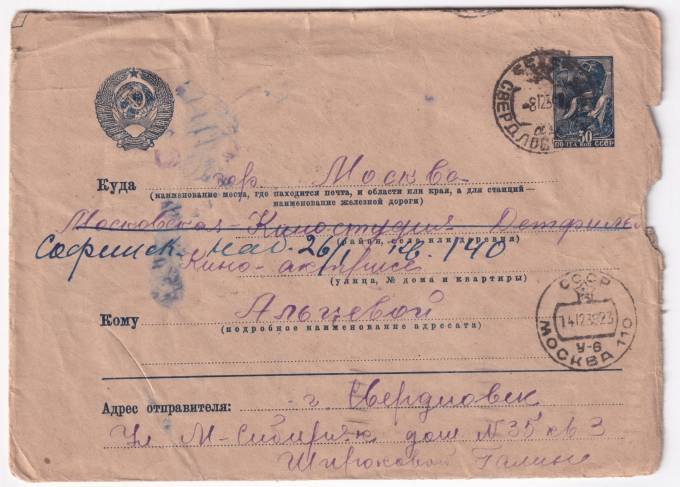 СВЕРДЛОВСК
-8 12 3
30
ПОЧТА КОП СССР
Куда гор. Москва
(наименование места, где находится почта, и области или края, а для станций —
наименование железной дороги)
Московская Киностудия Детфильм
(район, село или деревня)
Софийск. наб. 26/1 кв. 140
Кино-актрисе
(улица, № дома и квартиры)
СССР
14 12 39 23
У-8
МОСКВА 110
Кому Альцевой
(подробное наименование адресата)
Адрес отправителя: г. Свердловск
Ул М-Сибиряк дом № 35 кв 3
Широковой Галине